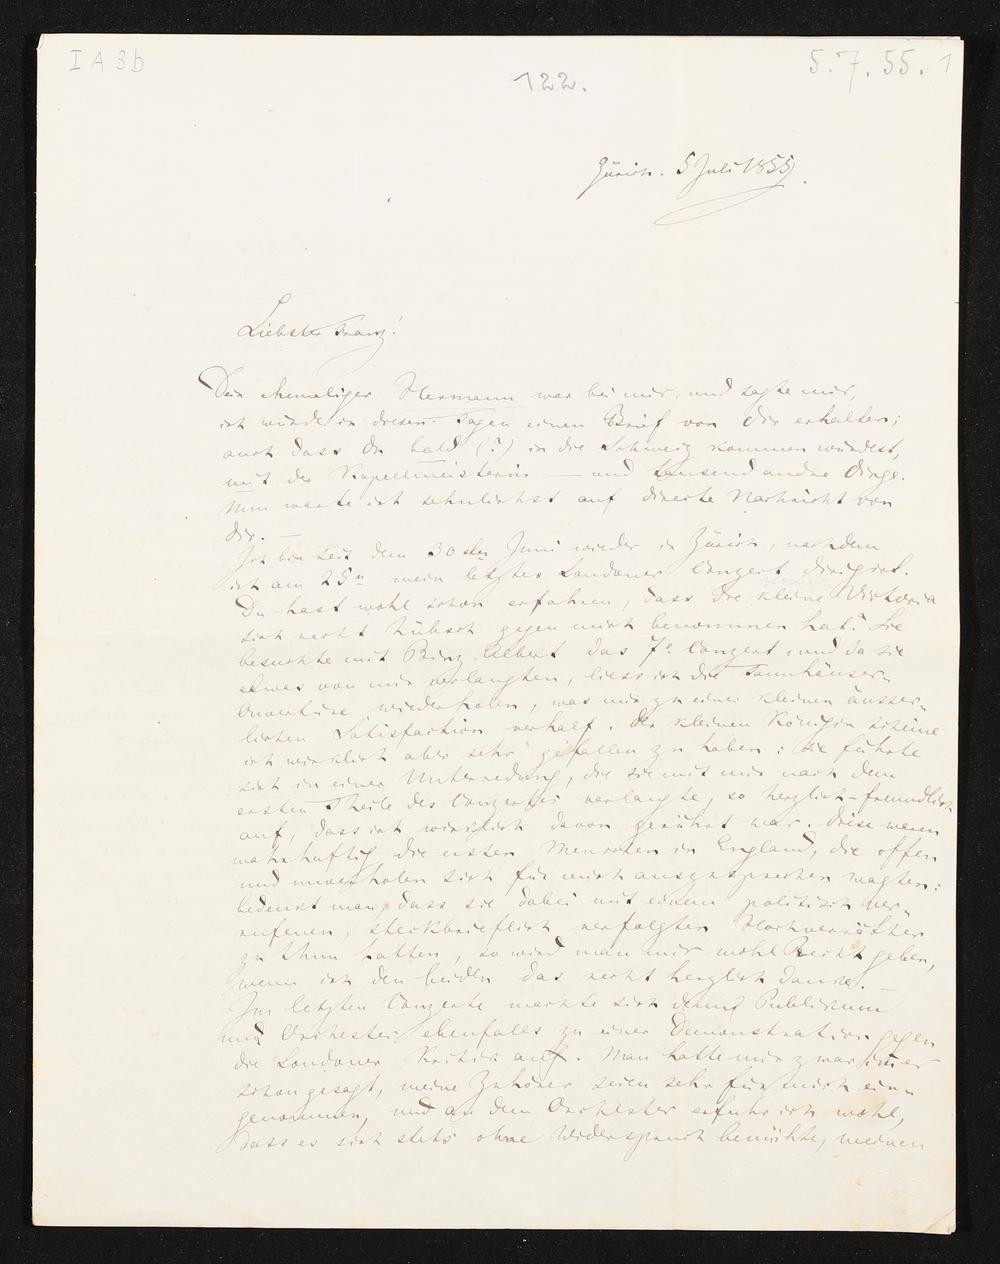 I A 3b
122.
5.7.55. 1
Zürich. 5 Juli 1855.
Liebster Franz!
Dein ehemaliger Hermann war bei mir, und sagte mir,
ich würde in diesen Tagen einen Brief von Dir erhalten;
auch dass Du bald (?) in die Schweiz kommen würdest,
mit der Kapellmeisterin — und tausend andre Dinge.
Nun warte ich sehnlichst auf directe Nachricht von
Dir. —
Ich bin seit dem 30sten Juni wieder in Zürich, nachdem
ich am 25n mein letztes Londoner Conzert dirigirt.
Du hast wohl schon erfahren, dass die kleine Victoria
sich recht hübsch gegen mich benommen hat? Sie
besuchte mit Prinz Albert das 7e Conzert, und da sie
etwas von mir verlangten, liess ich die Tannhäuser-
Ouvertüre wiederholen, was mir zu einer kleinen äusser-
lichen Satisfaction verhalf. Der kleinen Königin scheine
ich wirklich aber sehr gefallen zu haben: sie führte
sich in einer Unterredung, die sie mit mir nach dem
ersten Theile des Conzertes verlangte, so herzlich-freundlich
auf, dass ich wirklich davon gerührt war. Diese waren
wahrhaftig die ersten Menschen in England, die offen
und unverholen sich für mich auszusprechen wagten:
bedenkt man, dass sie dabei mit einem politisch ver-
rufenen, steckbrieflich verfolgten Hochverräther
zu thun hatten, so wird man mir wohl Recht geben,
wenn ich den beiden das recht herzlich danke. —
Im letzten Conzerte machte sich denn Publikum
und Orchester ebenfalls zu einer Demonstration gegen
die Londoner Kritik auf. Man hatte mir zwar immer
schon gesagt, meine Zuhörer seien sehr für mich ein-
genommen, und an dem Orchester erfuhr ich wohl,
dass es sich stets ohne Widerspruch bemühte, meinen